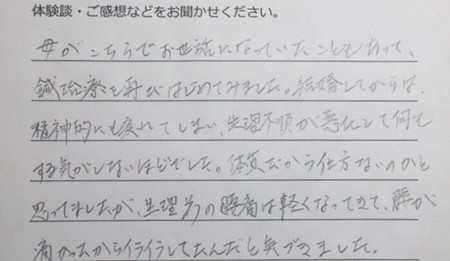 体験談・ご感想などをお聞かせください。
母がこちらでお世話になっていたこともあって、
鍼治療を再びはじめてみました。結婚してからは、
精神的にも疲れてしまい、生理不順が悪化して何も
する気がしないほどでした。体質だから仕方ないのかと
思ってましたが、生理前の腰痛は軽くなってきて、腰が
痛かったからイライラしてたんだと気づきました。